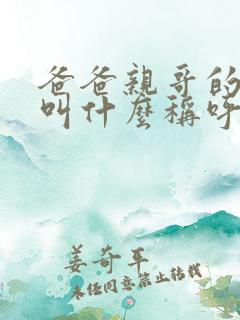 爸爸親哥的
叫什麼稱呼
姜奇平
未經同意禁止转载